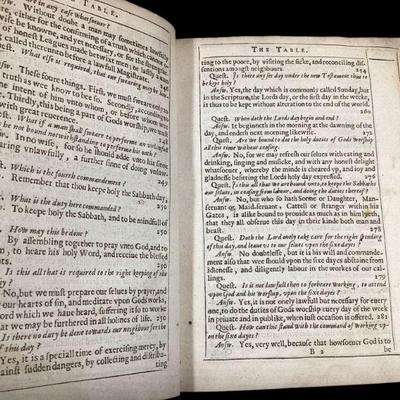 THE TABLE.
in any case whatsoever?
Answ. Without doubt a man may sometimes lawfully,
be either for the confirmation of a truth
of honest leagues made betwixt men
called thereunto before a lawfull Magistrate.
Quest. What else is required, that
Answ. These foure things. First, we must sweare only to
truth as we know to be so. Secondly,
the intent of him unto whom, or before whom
Thirdly, this being a part of Gods worship, we
and reverence.
Quest. What if a man shall sweare to performe
are not bound notwithstanding to performe
Answ. In no wise, for so he should adde unto his sinne
swearing unlawfully, a further sinne of doing
Which is the fourth commandement?
Remember that thou keepe holy the Sabbath day.
What is the duty here commanded?
To keepe holy the Sabbath, and to be mindfull of
How may this be done?
By assembling together to pray unto God, and to
to heare his holy Word, and receive the blessed
250
Is this all that is required to the right keeping of the
day?
No, but we must prepare our selues by prayer, and
our hearts of sin, and meditate upon Gods works,
word which we have heard, suffering it so to worke
that we may be furthered in all holines of life. 250
Is there no duty be done towards our neighbours the
of this day?
Yes, it is a speciall time of exercising mercy, by
against sudden dangers, by collecting and distribu-
ting
THE TABLE.
ting to the poore, by visiting the sicke, and reconciling dis-
sentions amongst neighbours. 254
Quest. Is there any set day under the new Testament thus to
be kept holy?
Answ. Yes, the day which is commonly called Sunday, but
in the Scripture, the Lords day, or the first day in the weeke,
is thus to be kept without alteration to the end of the world.
260
Quest. When doth the Lords day begin and end?
Answ. It beginneth in the morning at the dawning of the
day, and endeth next morning likewise. 272
Quest. Are we bound to doe the holy duties of Gods worship
all this time without ceasing?
Answ. No, for we may refresh our selues with eating and
drinking, singing and musick, and with any honest delight
whatsoever, whereby the minde is cheared up, and joy and
gladnesse beseeming the Lords holy day expressed. 276
Quest. Is this all that we are bound unto, to keepe the Sabbath
our selues, in ceasing from labour, and doing the duties hereof?
Answ. No, but who so hath Sonne or Daughter, Man-
servant or Maid-servant, Cattell or stranger within his
Gates, is alike bound to provide as much as in him lyeth,
that they also obserue this day in their kinde both man and
beast. 278
Quest. Doth the Lord onely take care for the right spending
of this day, and leaue us to our selues upon the sixe dayes?
Answ. No doubtlesse, but it is his will and commande-
ment also that wee should upon the sixe dayes abstaine from
Idlenesse, and diligently labour in the workes of our cal-
lings. 279
Quest. Is it not lawfull then to forbeare working, to attend
upon God and his worship, upon the sixe dayes?
Answ. Yes, it is not onely lawfull but necessary for every
one, to do the duties of Gods worship every day of the week
in private and in publike, when just occasion is offered. 281
Quest. How can this stand with the command of working up-
on the sixe dayes?
Answ. Yes, very well, because that howsoeuer God is to
B 2 be